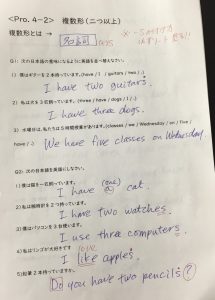 <Pro. 4-2> 複数形(二つ以上)
複数形とは → 名詞
Q1: 次の日本語の意味になるように英語を並べ替えなさい。
1) 僕はギターを2本持っています。(have / I / guitars / two / .)
I have two guitars.
2) 私は犬を3匹飼っています。(three / have / dogs / I / .)
I have three dogs.
3) 水曜日は、私たちは5時間授業があります。(classes / we / Wednesday / on / five / have / .)
We have five classes on Wednesday.
Q2: 次の日本語を英語にしなさい。
1) 僕は猫を一匹飼っています。
(one)
I have a cat.
2) 私は腕時計を2つ持っています。
I have two watches.
3) 僕はパソコンを3台使います。
I use three computers.
4) 私はリンゴが大好きです
love
I like apples.
5) 鉛筆2本持っていますか。
Do you have two pencils?